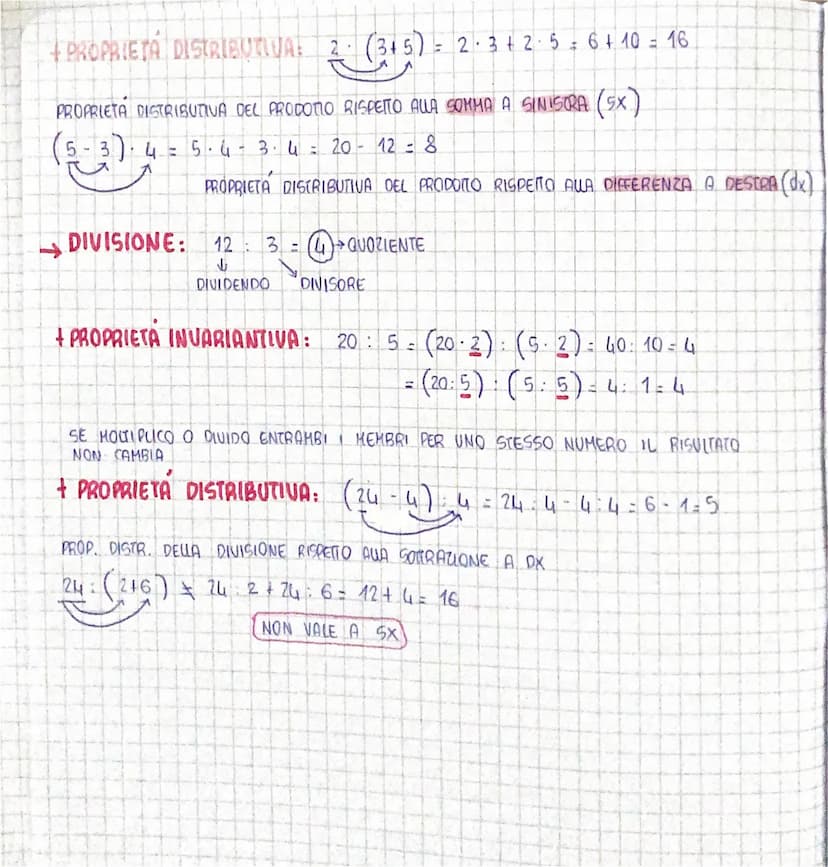 + PROPRIETÁ DISTRIBUTIVA: 2 · (3+5) = 2 · 3 + 2 · 5 = 6 + 10 = 16
PROPRIETÁ DISTRIBUTIVA DEL PRODOTTO RISPETTO ALLA SOMMA A SINISTRA (SX)
(5 - 3) · 4 = 5 · 4 - 3 · 4 = 20 - 12 = 8
PROPRIETÁ DISTRIBUTIVA DEL PRODOTTO RISPETTO ALLA DIFFERENZA A DESTRA (dx)
→ DIVISIONE: 12 : 3 = 4 → QUOZIENTE
↓ ↘
DIVIDENDO DIVISORE
+ PROPRIETÁ INVARIANTIVA: 20 : 5 = (20 · 2) : (5 · 2) = 40 : 10 = 4
= (20 : 5) : (5 : 5) = 4 : 1 = 4
SE MOLTIPLICO O DIVIDO ENTRAMBI I MEMBRI PER UNO STESSO NUMERO IL RISULTATO
NON CAMBIA
+ PROPRIETÁ DISTRIBUTIVA: (24 - 4) : 4 = 24 : 4 - 4 : 4 = 6 - 1 = 5
PROP. DISTR. DELLA DIVISIONE RISPETTO ALLA SOTTRAZIONE A DX
24 : (2+6) ≠ 24 : 2 + 24 : 6 = 12 + 4 = 16
NON VALE A SX